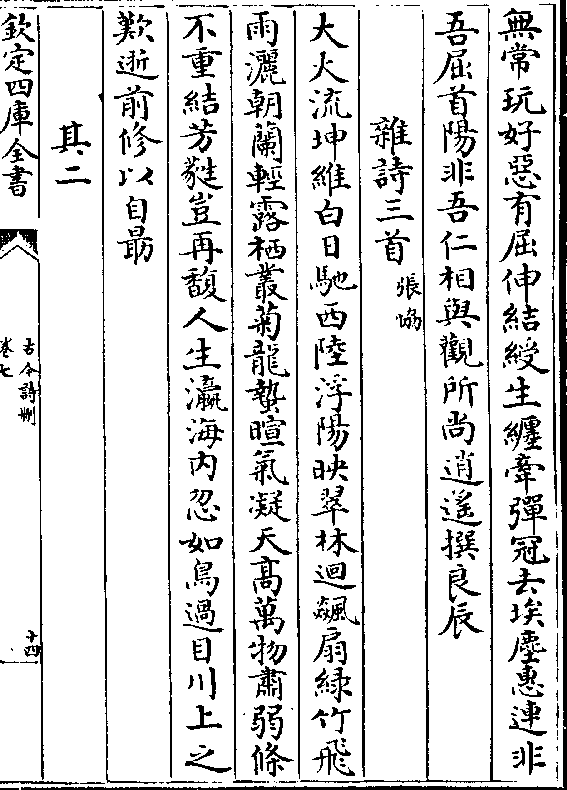 無常玩好惡有屈伸結綬生纏牽彈冠去埃塵惠連非
吾屈首陽非吾仁相與觀所尚逍遙撰良辰
雜詩三首張協
大火流坤維白日馳西陸浮陽映翠林迴飇扇綠竹飛
雨灑朝蘭輕露栖叢菊龍蟄暄氣凝天髙萬物肅弱條
不重結芳蕤豈再馥人生瀛海内忽如鳥過目川上之
歎逝前修以自朂
其二
欽定四庫全書
古今詩刪
卷七
十四